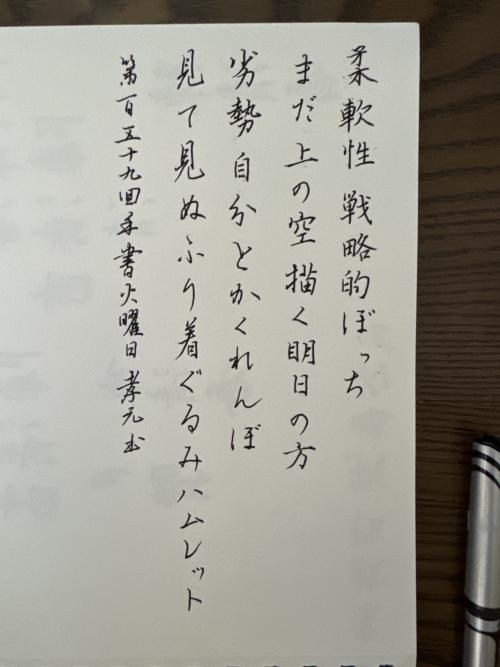 柔軟性 戦略的ぼっち
まだ上の空描く明日の方
劣勢 自分とかくれんぼ
見て見ぬふり着ぐるみハムレット
第百五十九回手書火曜日 孝元书